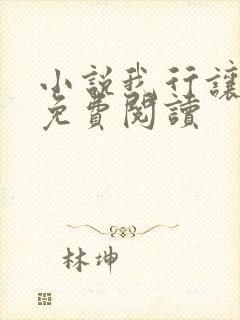 小說我行讓
免費閱讀
林坤